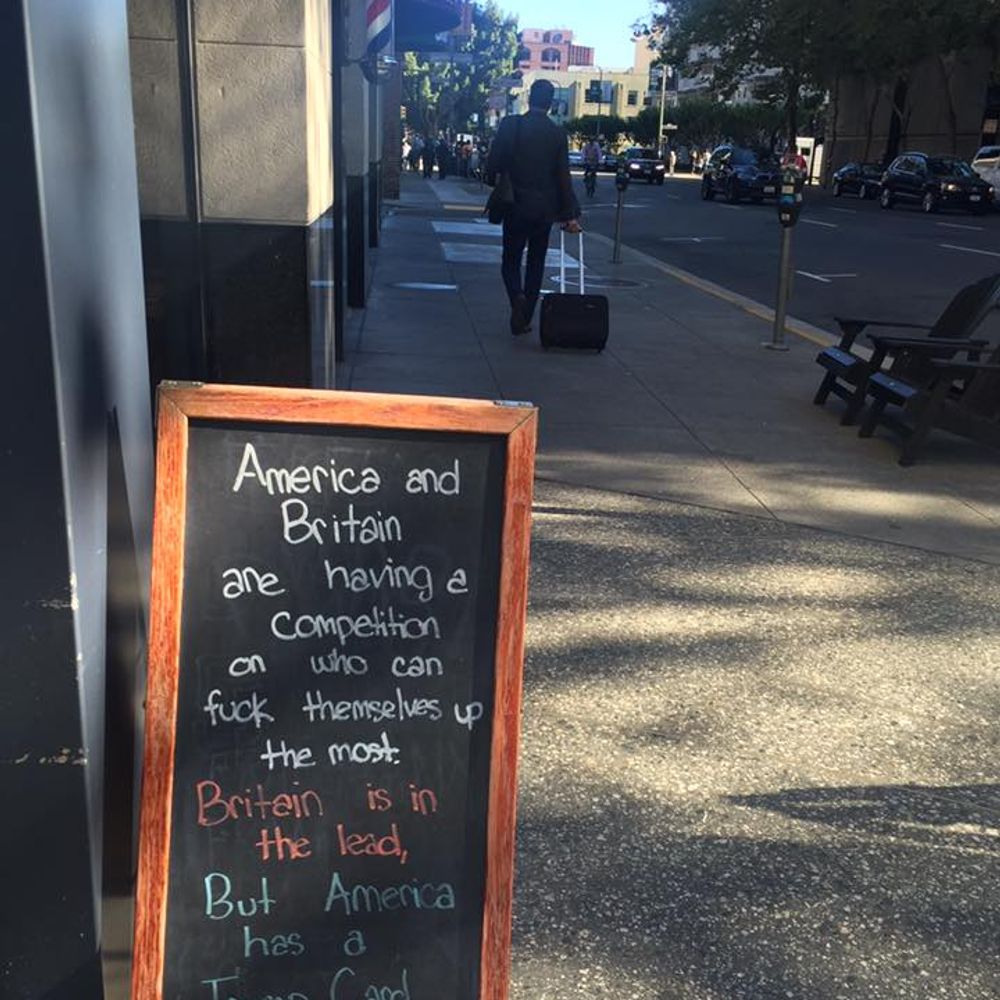 America and
Britain
are having a
competition
on who can
fuck themselves up
the most.
Britain is in
the lead,
But America
has a
Trump Card